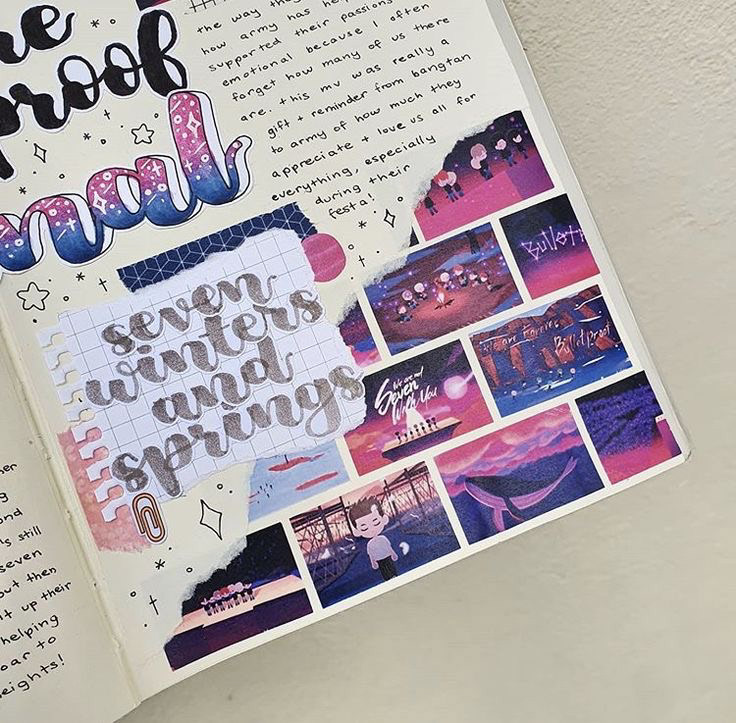 re
proof
nal
the way they
how army has
supported their passions
emotional because I often
forget how many of us there
are. this mv was really a
gift + reminder from bangtan
to army of how much they
appreciate + love us all for
everything, especially
during their
festa!
seven
winters
and
springs
Bulletpr
We are Forever
BulletProof
We are not
Seven
With You
her
g
ond
's still
seven
out then
it up their
helping
oar to
eights!